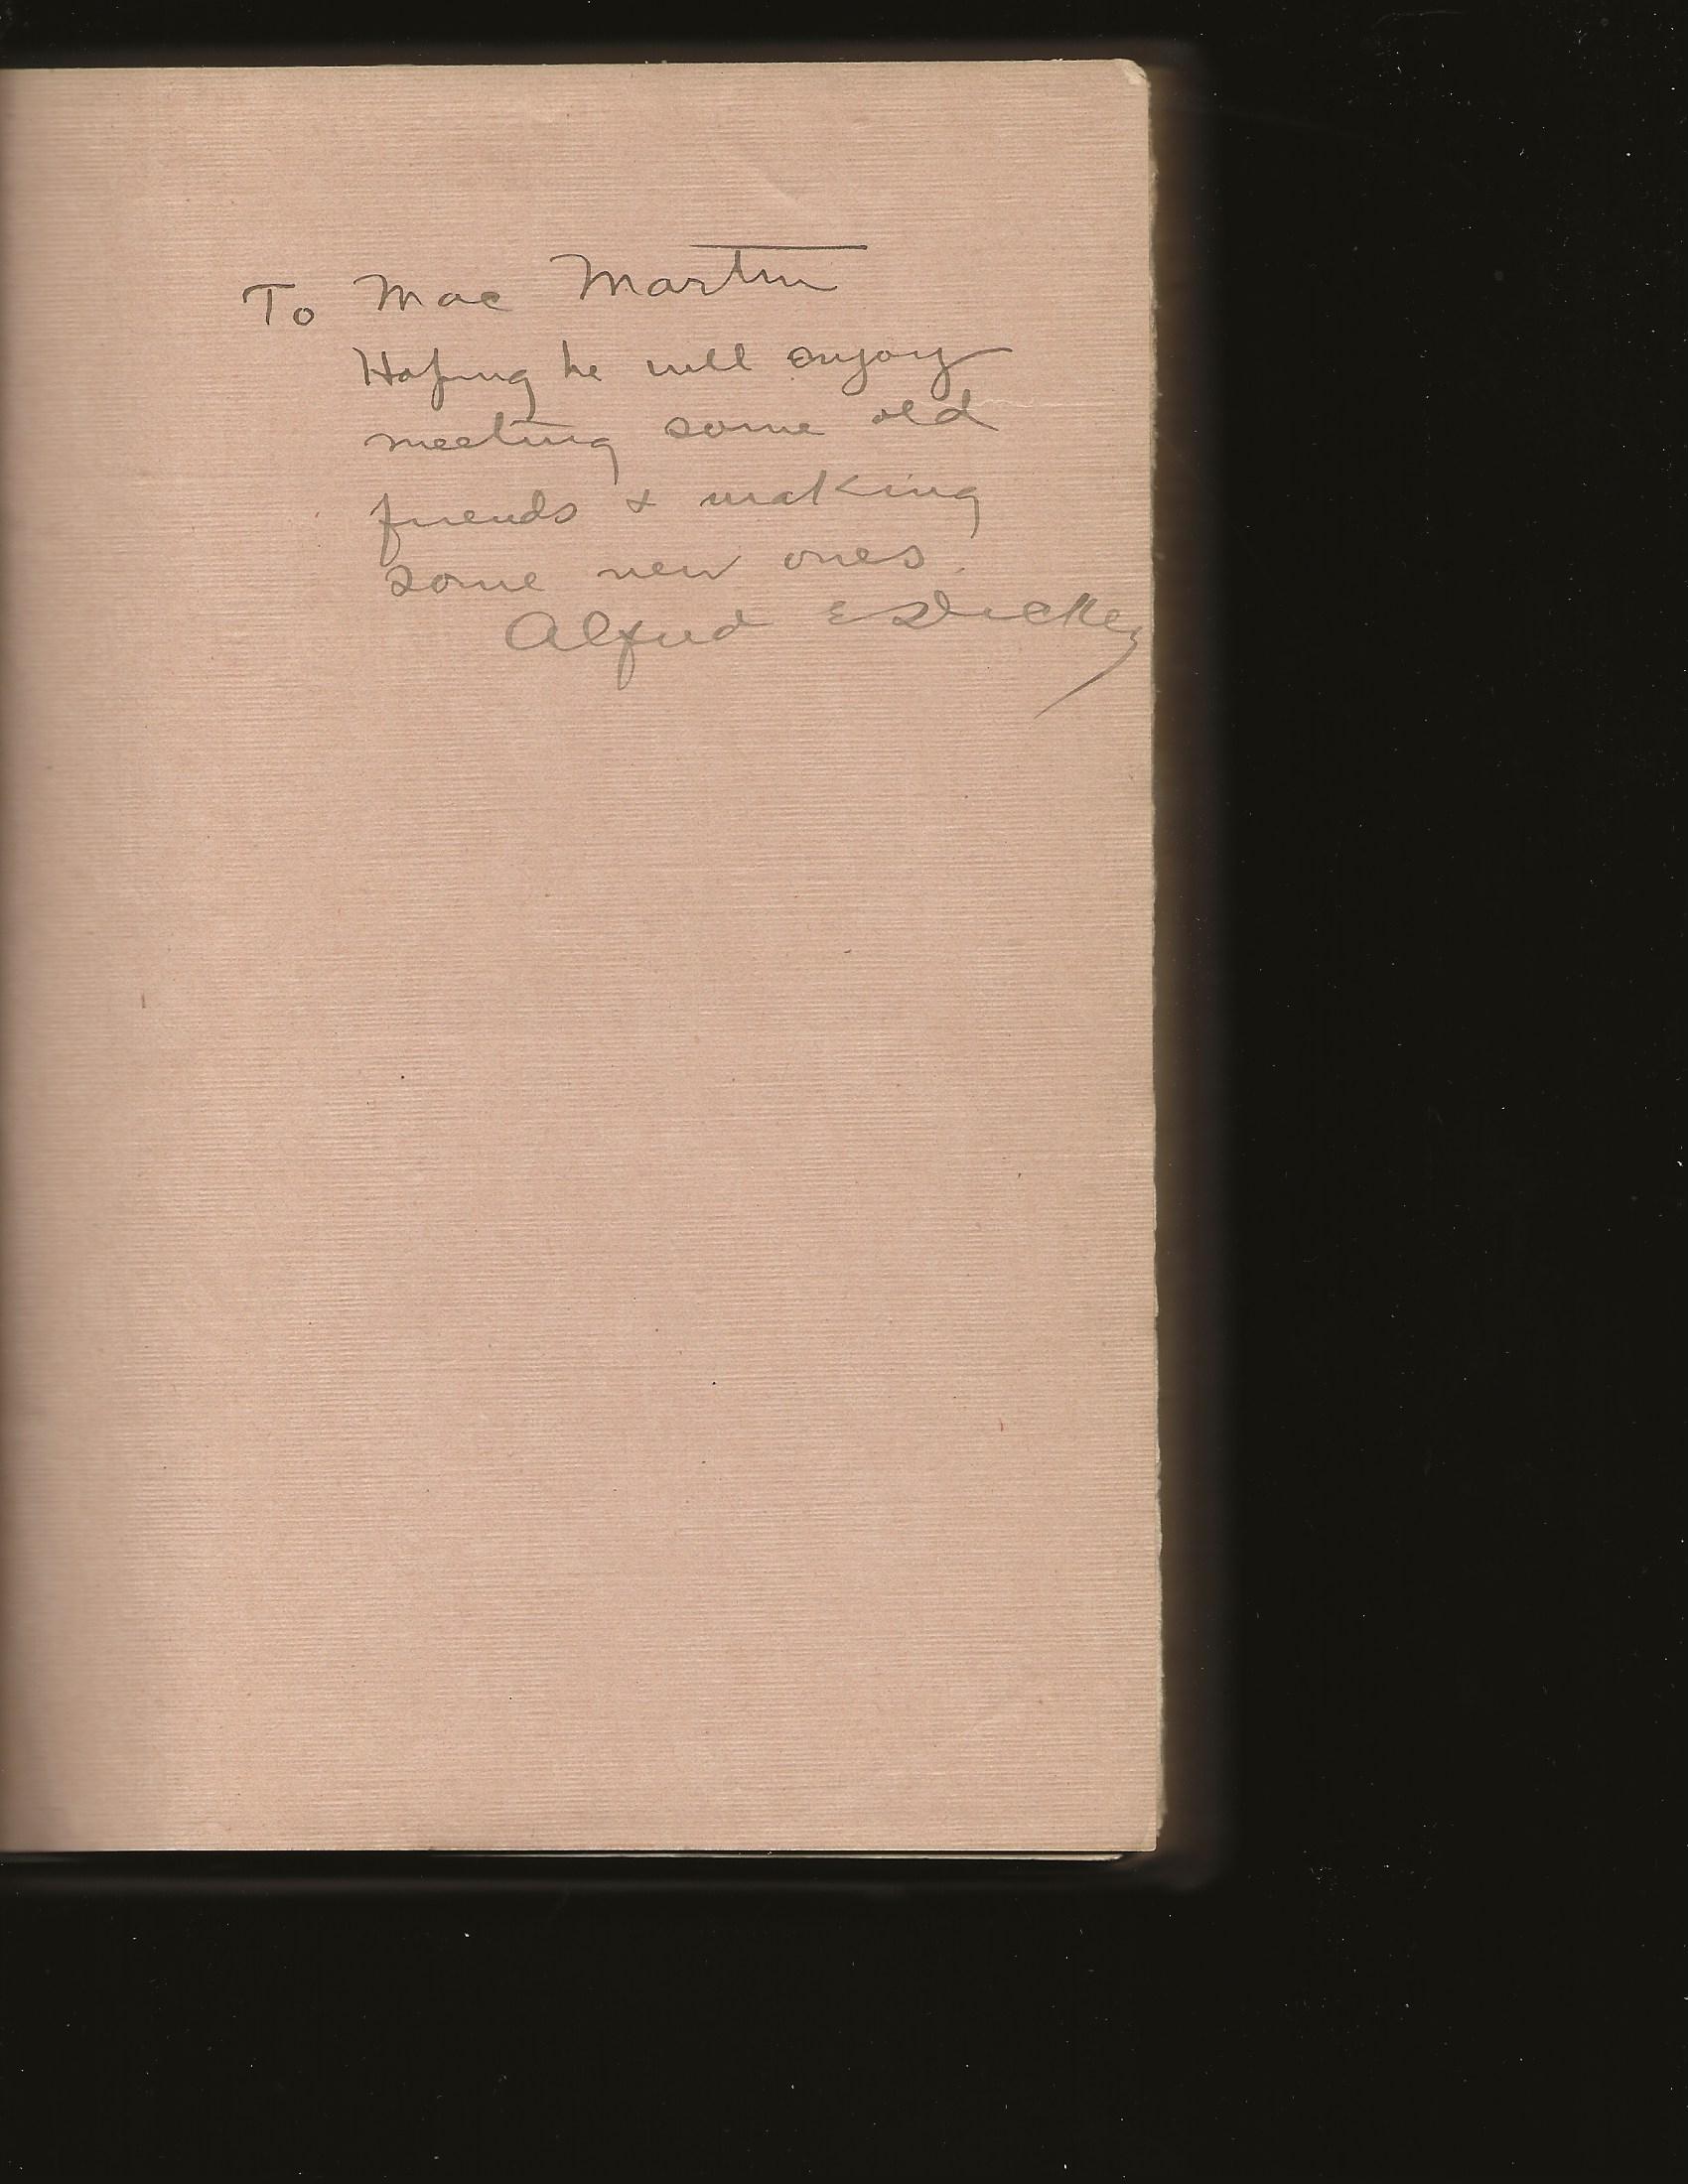 To Mac Martin
Hoping he will enjoy
meeting some old
friends & making
some new ones.
Alfred E Dickey